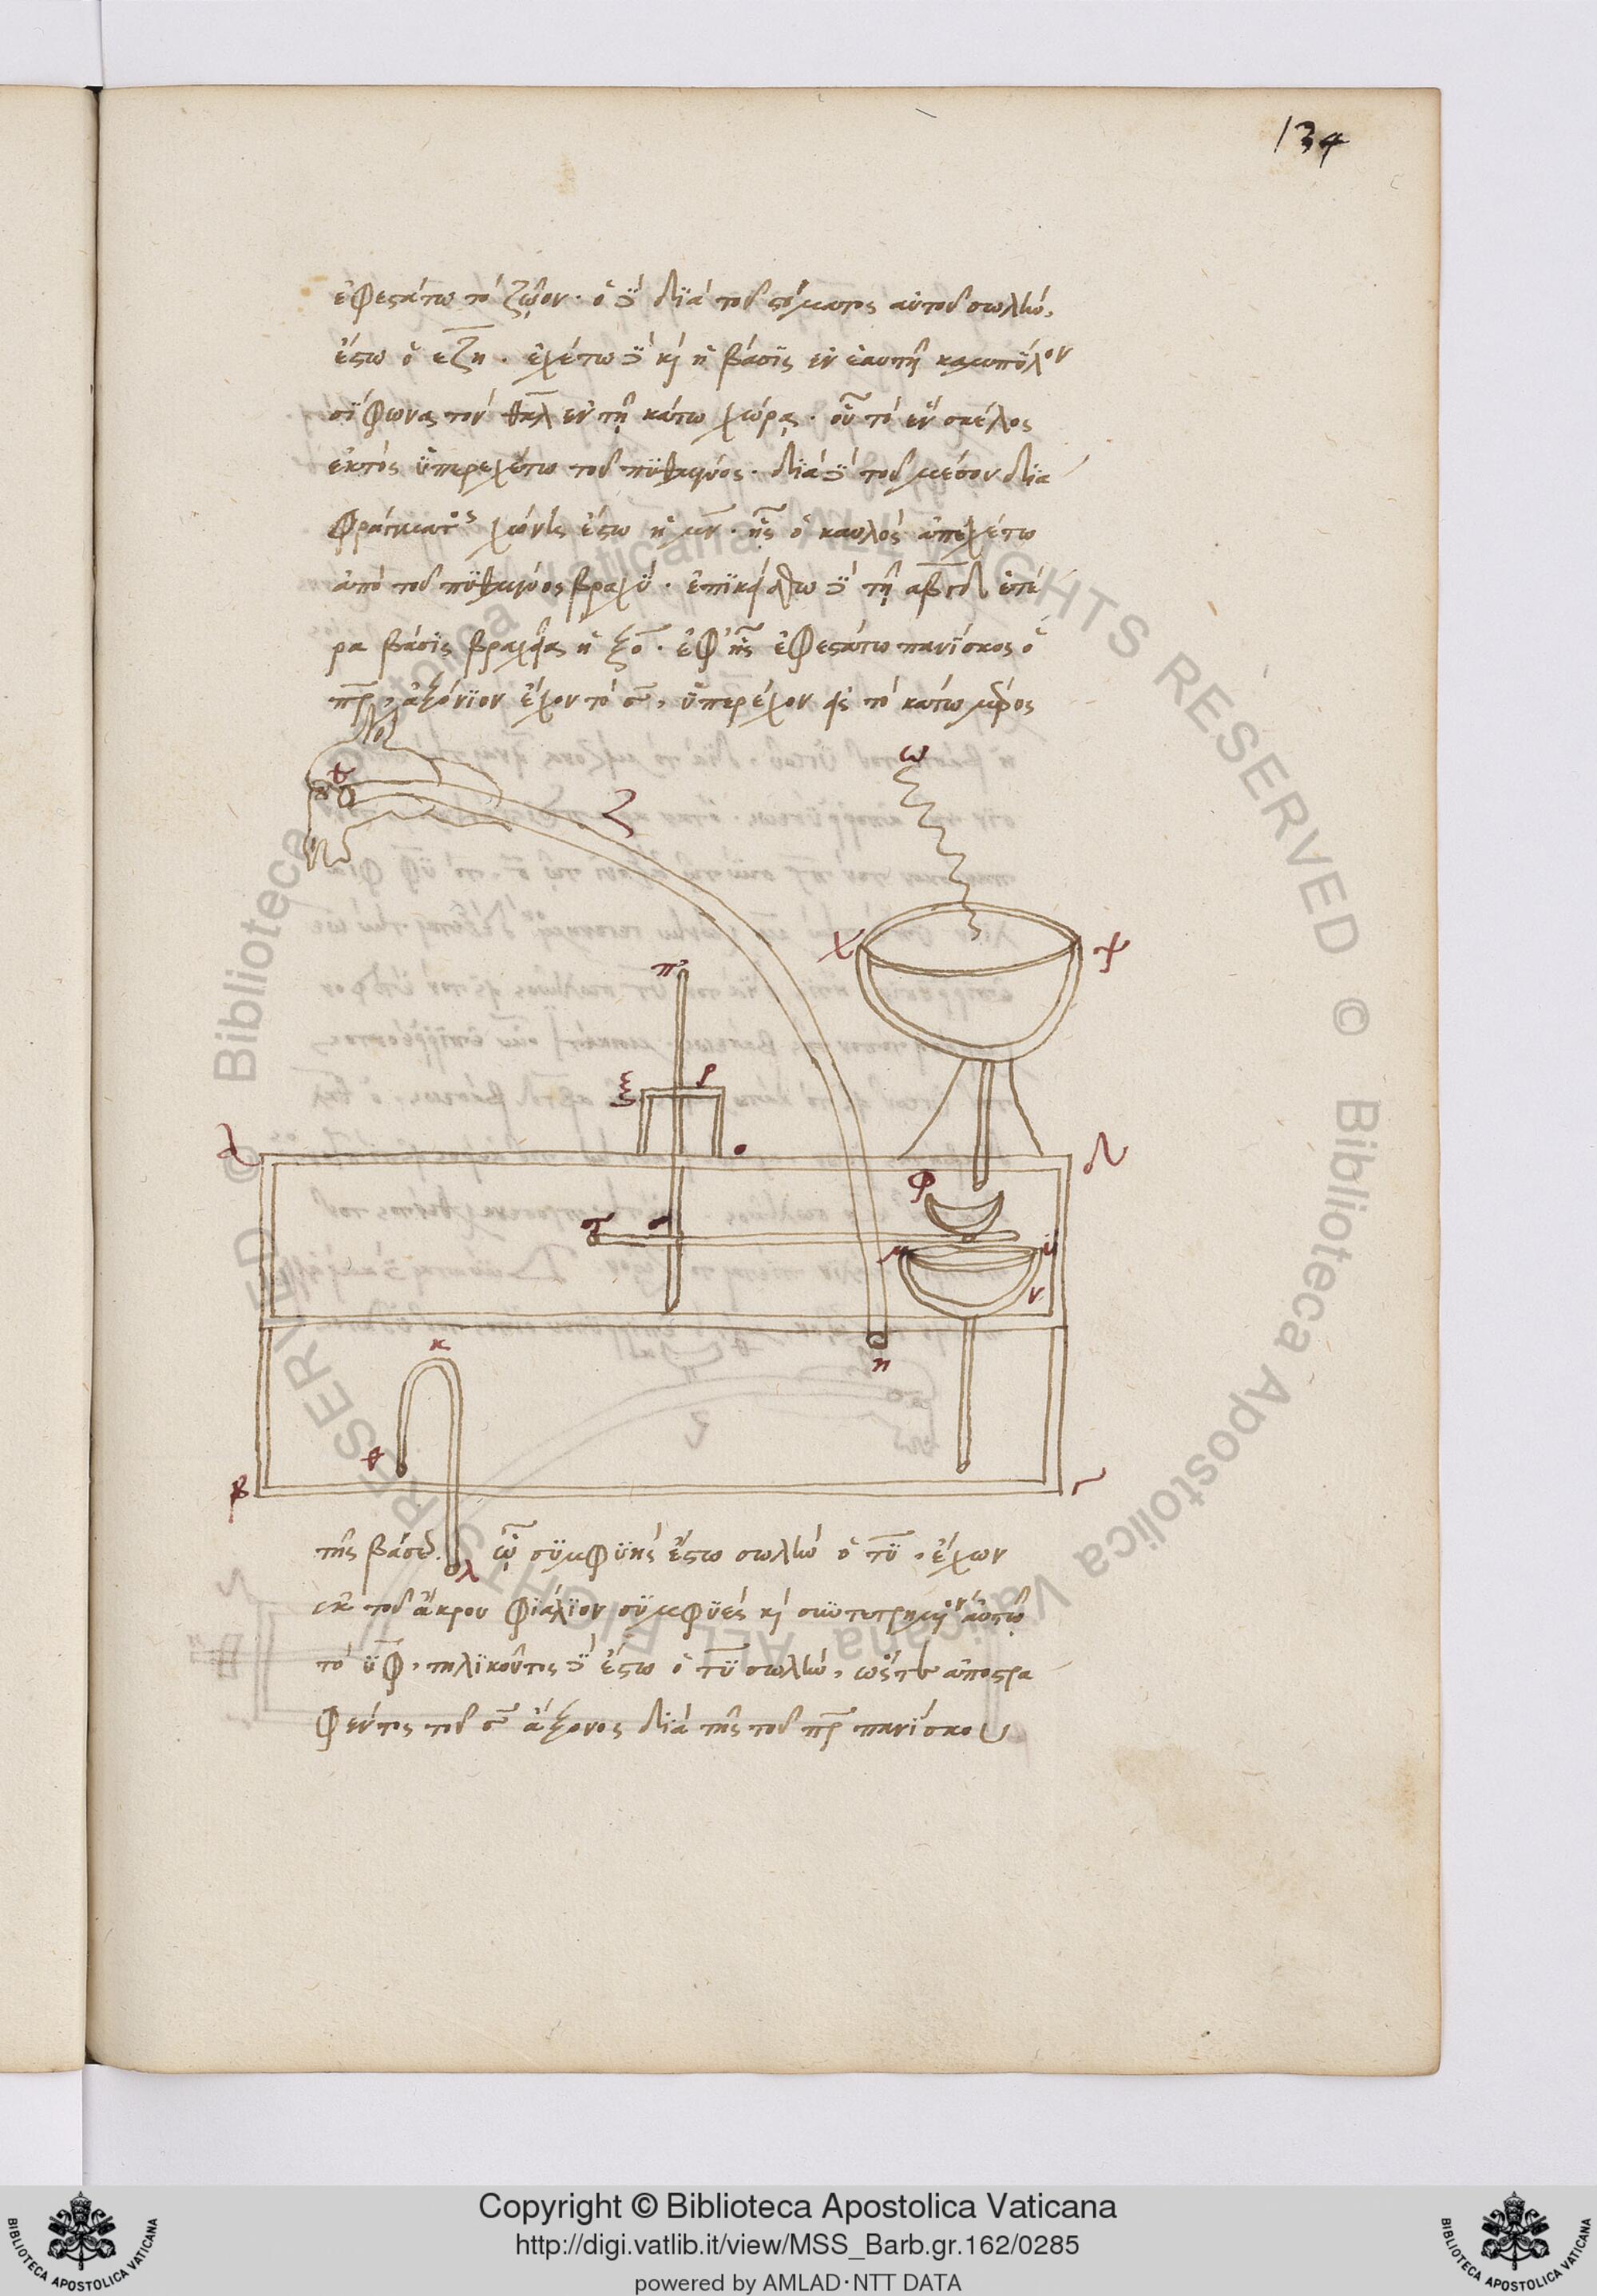 134
ἐφεστάτω τὸ ζῷον· ὁ δὲ διὰ τοῦ στόματος αὐτοῦ σωλὴν,
ἔστω ὁ εζη. ἐχέτω δὲ καὶ ἡ βάσις ἐν ἑαυτῇ καμπύλον
σίφωνα τὸν θκλ ἐν τῇ κάτω χώρᾳ· οὗ τὸ ἓν σκέλος
ἐκτὸς ὑπερεχέτω τοῦ πυθμένος· διὰ δὲ τοῦ μέσου δια
φράγματος χώνη ἔστω ἡ μν· ἧς ὁ καυλὸς ἀπεχέτω
ἀπὸ τοῦ πυθμένος βραχύ· ἐπικείσθω δὲ τῇ αβγδ ἑτέ
ρα βάσις βραχεῖα ἡ ξο· ἐφ' ἧς ἐφεστάτω πανίσκος ὁ
πρ, ἀξόνιον ἔχον τὸ σ, ὑπερέχον εἰς τὸ κάτω μέρος
ε
ζ
ω
χ
ψ
π
ξ
ρ
ο
α
δ
φ
τ
σ
μ
υ
ν
κ
η
θ
β
γ
τῆς βάσεως. λ ᾧ συμφυὴς ἔστω σωλὴν ὁ τυ, ἔχων
ἐκ τοῦ ἄκρου φιάλιον συμφυὲς καὶ συντετρημένον αὐτῷ
τὸ υφ, τηλικοῦτος δὲ ἔστω ὁ τυ σωλὴν, ὥστε ἀποστρα
φέντος τοῦ σ ἄξονος διὰ τῆς τοῦ πρ πανίσκου
© Biblioteca Apostolica Vaticana ALL RIGHTS RESERVED © Biblioteca Apostolica Vaticana ALL RIGHTS RESERVED
Copyright © Biblioteca Apostolica Vaticana
http://digi.vatlib.it/view/MSS_Barb.gr.162/0285
powered by AMLAD·NTT DATA
BIBLIOTECA APOSTOLICA VATICANA
BIBLIOTECA APOSTOLICA VATICANA